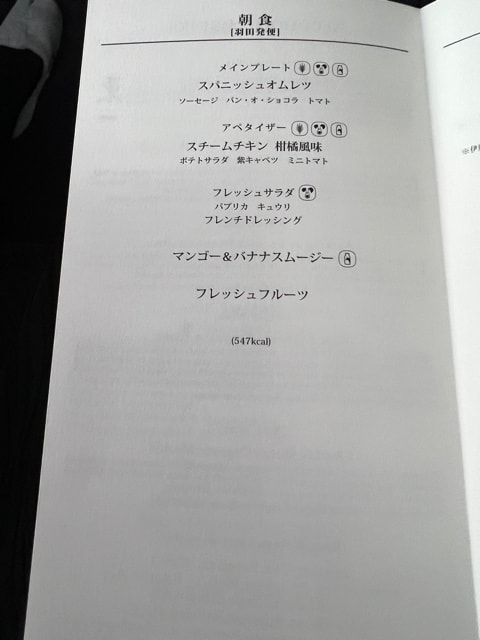 朝食
[羽田発便]
メインプレート
スパニッシュオムレツ
ソーセージ パン・オ・ショコラ トマト
アペタイザー
スチームチキン 柑橘風味
ポテトサラダ 紫キャベツ ミニトマト
フレッシュサラダ
パプリカ キュウリ
フレンチドレッシング
マンゴー&バナナスムージー
フレッシュフルーツ
(547kcal)
※伊